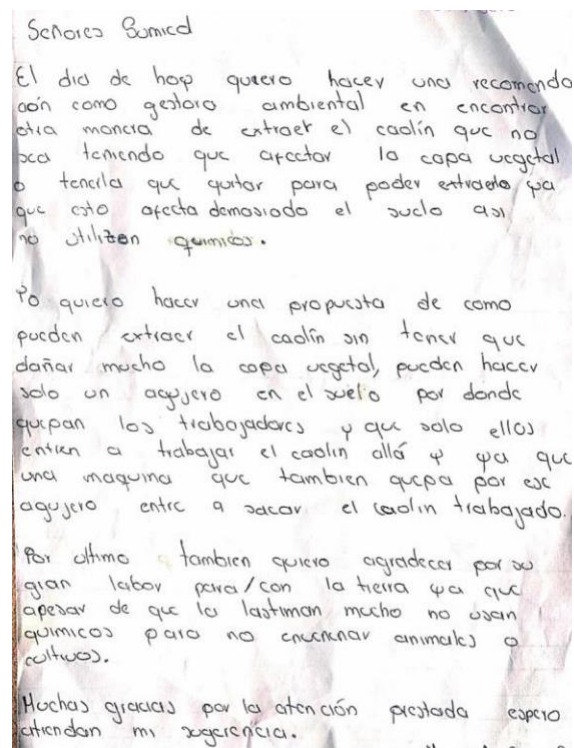 Señores Sumicol
El dia de hoy quiero hacer una recomenda
ción como gestora ambiental en encontrar
otra manera de extraer el caolín que no
sea teniendo que afectar la capa vegetal
o tenerla que quitar para poder extraerlo ya
que esto afecta demasiado el suelo asi
no utilizen quimicos.
Yo quiero hacer una propuesta de como
pueden extraer el caolín sin tener que
dañar mucho la capa vegetal, pueden hacer
solo un agujero en el suelo por donde
quepan los trabajadores y que solo ellos
entren a trabajar el caolin allá y ya que
una maquina que tambien quepa por ese
agujero entre a sacar el caolin trabajado.
Por ultimo tambien quiero agradecer por su
gran labor para/con la tierra ya que
apesar de que la lastiman mucho no usan
quimicos para no envenenar animales o
cultivos.
Muchas gracias por la atención prestada espero
atiendan mi sugerencia.